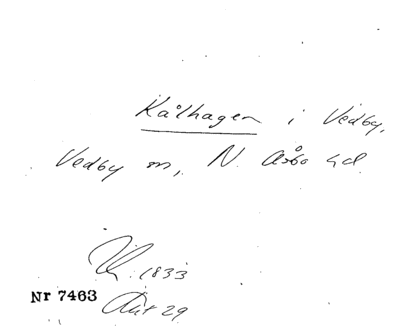 Kålhagen i Vedby,
Vedby sn, N. Åsbo hd.
1833
Nr 7463
Akt 29